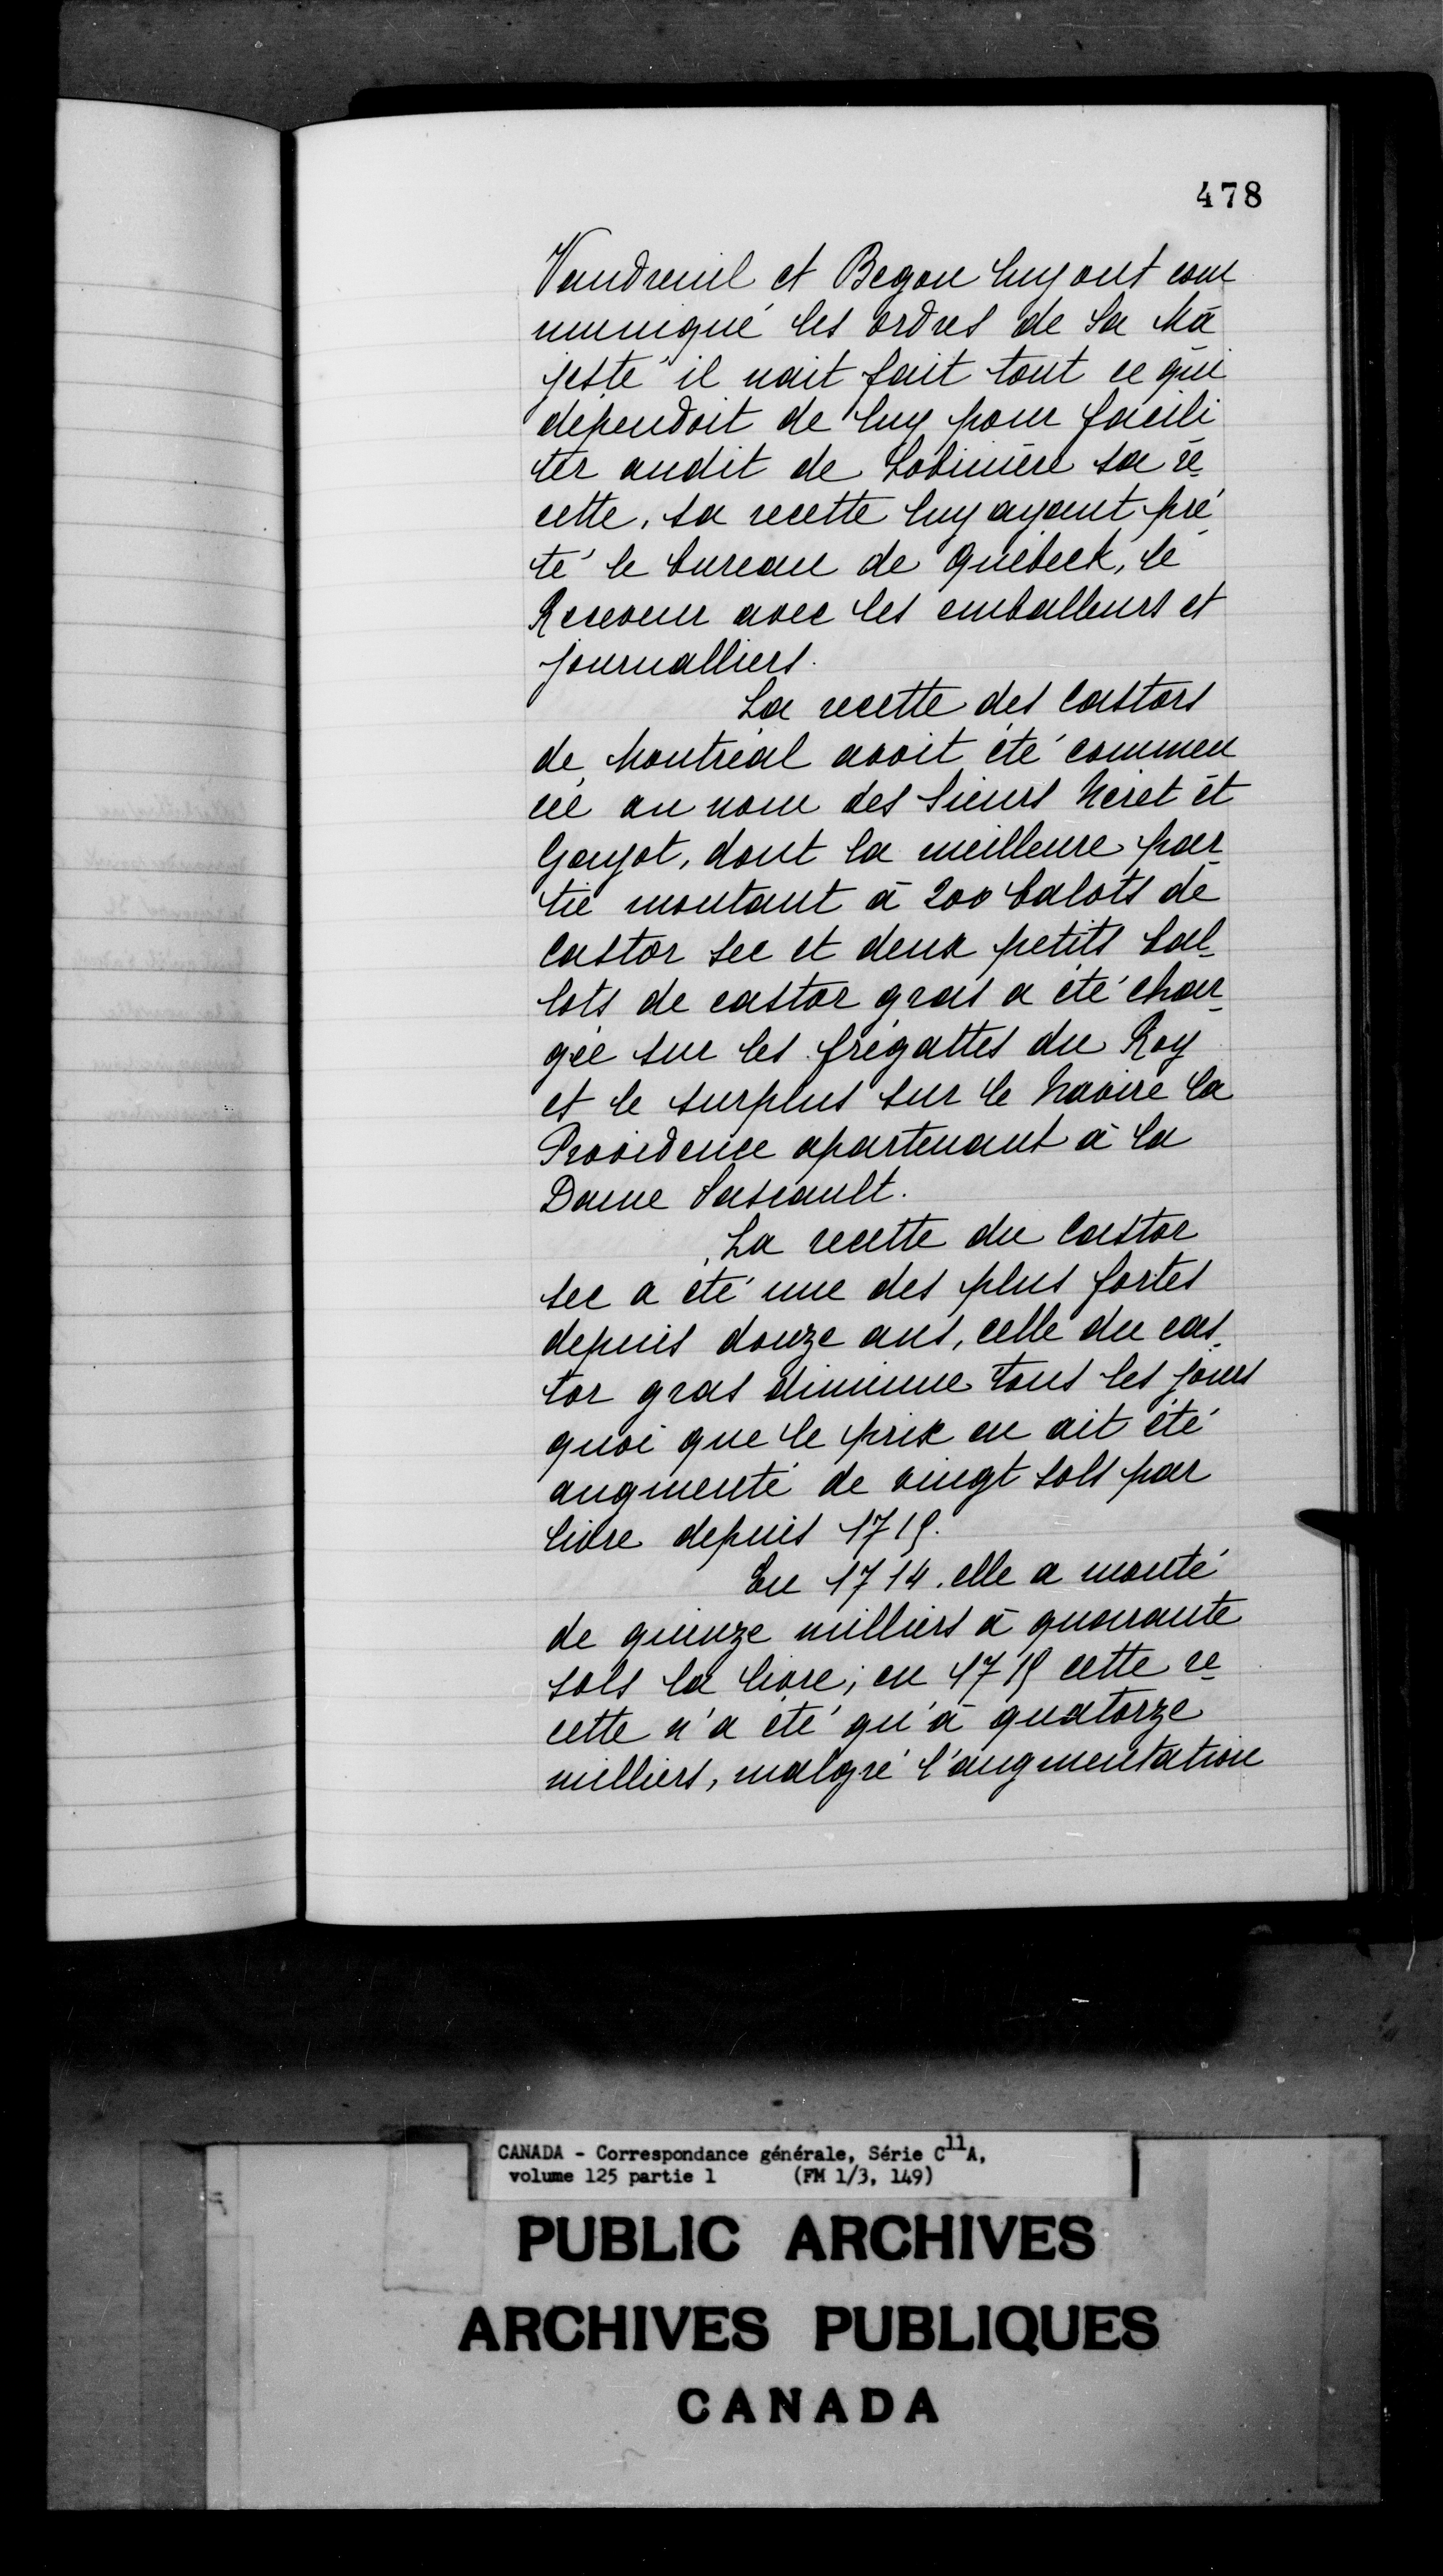 478
Vaudreuil et Begon luy ont com
muniqué les ordres de Sa Ma
jesté il nait fait tout ce qui
dependoit de luy pour facili
ter audit de Lobinière sa re
cette, sa recette luy ayant pré
té le bureau de Québeck, le
Receveur avec les emballeurs et
journalliers.
La recette des Castors
de Montréal avoit été commen
cée au nom des Sieurs Néret et
Gayot, dont la meilleure par
tie montant à 200 balots de
Castor sec et deux petits bal
lots de castor gras a été char
gée sur les frégattes du Roy
et le surplus sur le Navire la
Providence apartenant à la
Dame Pascault.
La recette du Castor
sec a été une des plus fortes
depuis douze ans, celle du cas
tor gras diminue tous les jours
quoi que le prix en ait été
augmenté de vingt sols par
livre depuis 1715.
En 1714. elle a monté
de quinze milliers à quarante
sols la livre; en 1715 cette re
cette n'a été qu'à quatorze
milliers, malgré l'augmentation
CANADA - Correspondance générale, Série C11A,
volume 125 partie 1 (FM 1/3, 149)
PUBLIC ARCHIVES
ARCHIVES PUBLIQUES
CANADA